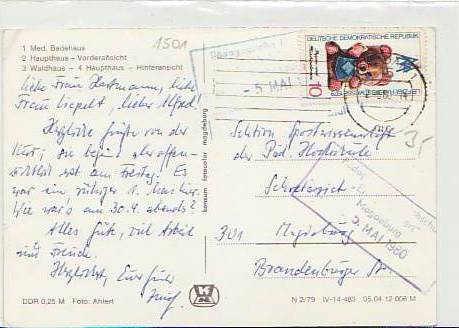 1 Med. Badehaus
2 Haupthaus - Vorderansicht
3 Waldhaus - 4 Haupthaus - Hinteransicht
1501
DEUTSCHE DEMOKRATISCHE REPUBLIK
10
- 5 MAI
Liebe Frau Hartmann, liebe
Frau Liepelt, lieber Alfred!
Herzliche Grüße von der
Kur; sie begint aber offen-
sichtlich erst am Freitag. Es
war ein ruhiger 1. Mai hier.
Wie war's am 30.4. abends?
Alles Gute, viel Arbeit
und Freude.
Herzlichst, Euer
konsum fotocolor magdeburg
Sektion Sportwissenschaft
der Päd. Hochschule
35
Sekretariat
5. MAI 1980
301 Magdeburg
Brandenburger Str.
DDR 0,25 M Foto: Ahlert
N 2/79 IV-14-483 05 04 12 006 M